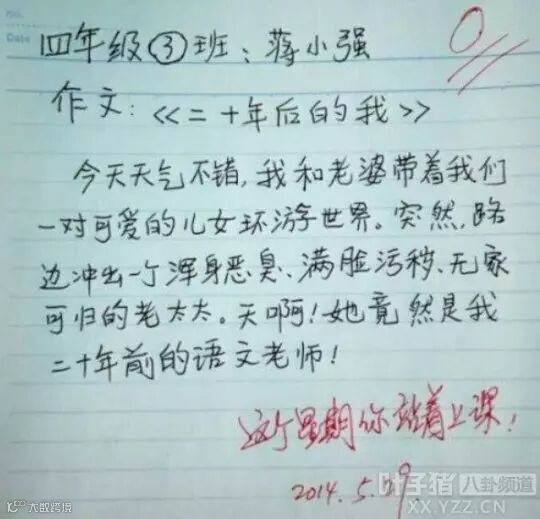 No.
Date
0
四年级③班：蒋小强
作文：《二十年后的我》
今天天气不错，我和老婆带着我们
一对可爱的儿女环游世界。突然，路
边冲出一个浑身恶臭、满脸污秽、无家
可归的老太太。天啊！她竟然是我
二十年前的语文老师！
这个星期你站着上课！
2014.5.29.
叶子猪|八卦频道
XX.YZZ.CN
大数跨境